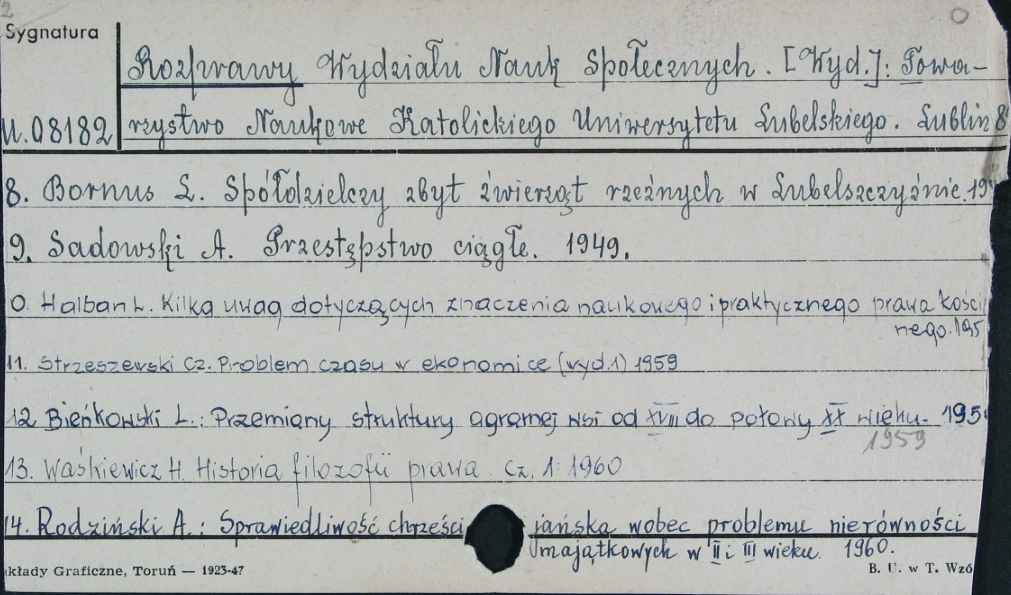 Sygnatura
Rozprawy Wydziału Nauk Społecznych. [Wyd.]: Towa-
U.08182 rzystwo Naukowe Katolickiego Uniwersytetu Lubelskiego. Lublin 8
8. Bornus L. Spółdzielczy zbyt źwierząt rzeźnych w Lubelszczyźnie. 19
9. Sadowski A. Przestępstwo ciągłe. 1949.
0. Halban L. Kilka uwag dotyczących znaczenia naukowego i praktycznego prawa kości
nego. 195
11. Strzeszewski Cz. Problem czasu w ekonomice (wyd.1) 1959
12 Bieńkowski L.: Przemiany struktury agrarnej wsi od XVIII do połowy XX wieku. 195
1959
13. Waśkiewicz H. Historia filozofii prawa. Cz. 1. 1960
14. Rodziński A.: Sprawiedliwość chrześcijańska wobec problemu nierówności
majątkowych w II i III wieku. 1960.
kłady Graficzne, Toruń — 1923-47 B. U. w T. Wzó